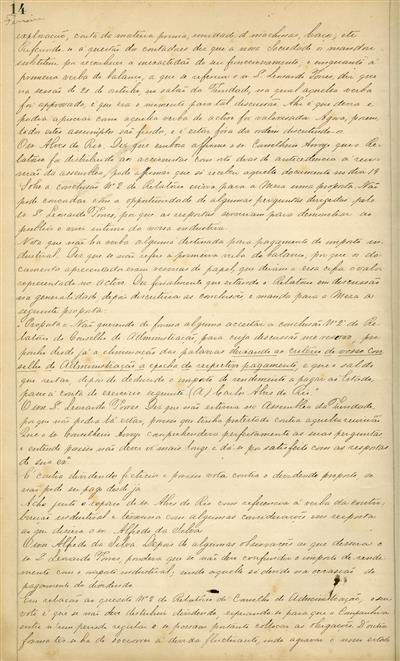 14
exploração, conta de materia prima, unidade d'machinas, Caixa, etc
Referindo-se a questão do contador diz que a nova Sociedade o mandou
substituir por reconhecer a inexactidão do seu funccionamento; e emquanto á
primeira verba do balanço, a que se referiu o sr. Leonardo Torres, diz que
na sessão de 20 de outubro no salão da Trindade, na qual aquella verba
foi approvada, é que era o momento para tal discussão. Ahi é que devia e
podia apreciar como aquella verba do activo foi valorisada. Agora, porem,
todos estes assumptos são findos, e é estar fora da ordem discutindo-os.
O sr. Alves do Rio. Diz que embora affirme o sr. Conselheiro Arroyo que o Re-
latorio foi distribuido aos accionistas com oito dias de antecedencia á reu-
nião da assembléa, pode affirmar que só recebeu aquelle documento no dia 19
Sobre a conclusão Nº 2 do Relatorio enviou para a Meza uma proposta. Não
pode concordar com a opportunidade de algumas perguntas dirigidas pelo
sr. Leonardo Torres, por que as respostas serviriam para demonstrar ao
publico o viver intimo da nossa industria.
Nota que não ha verba alguma destinada para pagamento do imposto in-
dustrial. Diz que se não refere á primeira verba do balanço, por que os do-
cumentos apresentados eram resmas de papel, que diziam a essa epoca o valor
representado no Activo. Diz finalmente que estando o Relatorio em discussão
na generalidade depois discutirá as conclusões e manda para a Meza a
seguinte proposta:
"Proposta = Não querendo de forma alguma acceitar a conclusão Nº 2 do Re-
latorio do Conselho de Administração para cuja discussão me reservo, pro-
ponho desde já a eliminação das palavras deixando ao criterio do vosso con-
selho de Administração a epocha do respectivo pagamento, e que o saldo
que restar, depois de deduzido o imposto de rendimento a pagar ao Estado,
passe á conta do exercicio seguinte (a) Carlos Alves do Rio."
O sr. Leonardo Torres Diz que não esteve na Assembléa da Trindade,
por que não podia lá estar, pois que tinha protestado contra aquella reunião.
Que o sr. Conselheiro Arroyo comprehendeu perfeitamente as suas perguntas
e entende porem não dever ir mais longe e dá-se por satisfeito com as respostas
de sua exª.
É contra dividendo ficticio e porisso vota contra o dividendo proposto se
não pode ser pago desde já
Acho justo o reparo do sr. Alves do Rio com referencia á verba da contri-
buição industrial e terminou com algumas considerações em resposta
ao que dissera o sr. Alfredo da Silva
O sr. Alfredo da Silva. Depois de algumas observações ao que dissera o
sr. Leonardo Torres, pondera que se não deve confundir o imposto de rendi-
mento com o imposto industrial; sendo aquelle só devido na occasião do
pagamento do dividendo.
Em relação ao quesito Nº 2 do Relatorio do Conselho de Administração, o seu
voto é que se não deve distribuir dividendo, esperando-se para que a Companhia
entre n'um periodo regular e se possam portanto collocar as obrigações. D'outra
forma ter-se-ha de soccorrer á divida fluctuante, onde aggravar o nosso estado